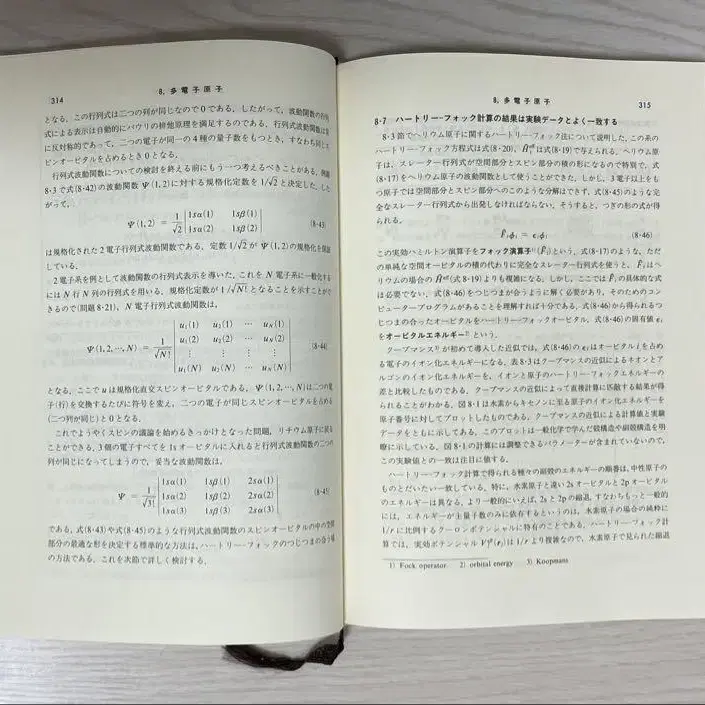 314
8. 多電子原子
となる．この行列式は二つの列が同じなので0である．したがって，波動関数の行列
式による表示は自動的にパウリの排他原理を満足するのである．行列式波動関数は常
に反対称的であって，二つの電子が同一の4種の量子数をもつとき，すなわち同じス
ピンオービタルを占めるとき0となる．
行列式波動関数についての検討を終える前にもう一つ考えるべきことがある．例題
8·3で式(8·42)の波動関数 Ψ(1,2)に対する規格化定数を1/√2と決定した．した
がって，
Ψ(1,2) = 1/√2 |1sα(1) 1sβ(1)|
|1sα(2) 1sβ(2)| (8·43)
は規格化された2電子行列式波動関数である．定数1/√2がΨ(1,2)の規格化を保証
している．
2電子系を例として波動関数の行列式表示を導いた．これをN電子系に一般化する
にはN行N列の行列式を用いる．規格化定数が1/√N!となることを示すことがで
きるので(問題8·21)，N電子行列式波動関数は，
Ψ(1,2,⋯,N) = 1/√N! |u₁(1) u₂(1) ⋯ u_N(1)|
|u₁(2) u₂(2) ⋯ u_N(2)|
|⋮ ⋮ ⋮ ⋮|
|u₁(N) u₂(N) ⋯ u_N(N)| (8·44)
となる．ここでuは規格化直交スピンオービタルである．Ψ(1,2,⋯,N)は二つの電
子(行)を交換するたびに符号を変え，二つの電子が同じスピンオービタルを占める
(二つの列が同じ)と0となる．
これでようやくスピンの議論を始めるきっかけとなった問題，リチウム原子に戻る
ことができる．3個の電子すべてを1sオービタルに入れると行列式波動関数の二つの
列が同じになってしまうので，妥当な波動関数は，
Ψ = 1/√3! |1sα(1) 1sβ(1) 2sα(1)|
|1sα(2) 1sβ(2) 2sα(2)|
|1sα(3) 1sβ(3) 2sα(3)| (8·45)
である．式(8·43)や式(8·45)のような行列式波動関数のスピンオービタルの中の空間
部分の最適な形を決定する標準的な方法は，ハートリー-フォックのつじつまの合う場
の方法である．これを次節で詳しく検討する．
8. 多電子原子
315
8·7 ハートリー-フォック計算の結果は実験データとよく一致する
8·3節でヘリウム原子に関するハートリー-フォック法について説明した．この系の
ハートリー-フォック方程式は式(8·20)，Ĥ₁ᵉᶠᶠは式(8·19)で与えられる．ヘリウム原
子は，スレーター行列式が空間部分とスピン部分の積の形になるので特別で，式
(8·17)をヘリウム原子の波動関数として使うことができた．しかし，3電子以上をも
つ原子では空間部分とスピン部分へのこのような分解はできず，式(8·45)のような完
全なスレーター行列式から出発しなければならない．そうすると，つぎの形の式が得
られる．
F̂ᵢϕᵢ = εᵢϕᵢ (8·46)
この実効ハミルトン演算子をフォック演算子¹⁾(F̂ᵢ)という．式(8·17)のような，ただ
の単純な空間オービタルの積の代わりに完全なスレーター行列式を使うと，F̂ᵢはヘ
リウムの場合のĤᵉᶠᶠ(式8·19)よりも複雑になる．しかし，ここではF̂ᵢの具体的な式
は必要でない．式(8·46)をつじつまが合うように解く必要があり，そのためのコン
ピュータープログラムがあることを理解すれば十分である．式(8·46)から得られるつ
じつまの合ったオービタルをハートリー-フォックオービタル，式(8·46)の固有値εᵢ
をオービタルエネルギー²⁾という．
クープマンス³⁾が初めて導入した近似では，式(8·46)のεᵢはオービタルiを占め
る電子のイオン化エネルギーになる．表8·3はクープマンスの近似によるネオンとア
ルゴンのイオン化エネルギーを，イオンと原子のハートリー-フォックエネルギーの
差と比較したものである．クープマンスの近似によって直接計算に匹敵する結果が得
られることがわかる．図8·1は水素からキセノンに至る原子のイオン化エネルギーを
原子番号に対してプロットしたものである．クープマンスの近似による計算値と実験
データをともに示してある．このプロットは一般化学で学んだ殻構造や副殻構造を明
瞭に示している．図8·1の計算には調整できるパラメーターが含まれていないので，
この実験値との一致は注目に値する．
ハートリー-フォック計算で得られる種々の副殻のエネルギーの順番は，中性原子の
ものとだいたい一致している．特に，水素原子と違い2sオービタルと2pオービタル
のエネルギーは異なる．より一般的にいえば，2sと2pの縮退，すなわちもっと一般的
には，エネルギーが主量子数のみに依存するというのは，水素原子の場合の純粋に
1/rに比例するクーロンポテンシャルに特有のことである．ハートリー-フォック計
算では，実効ポテンシャルVᵢᵉᶠᶠ(rᵢ)は1/rより複雑なので，水素原子で見られた縮退
1) Fock operator 2) orbital energy 3) Koopmans